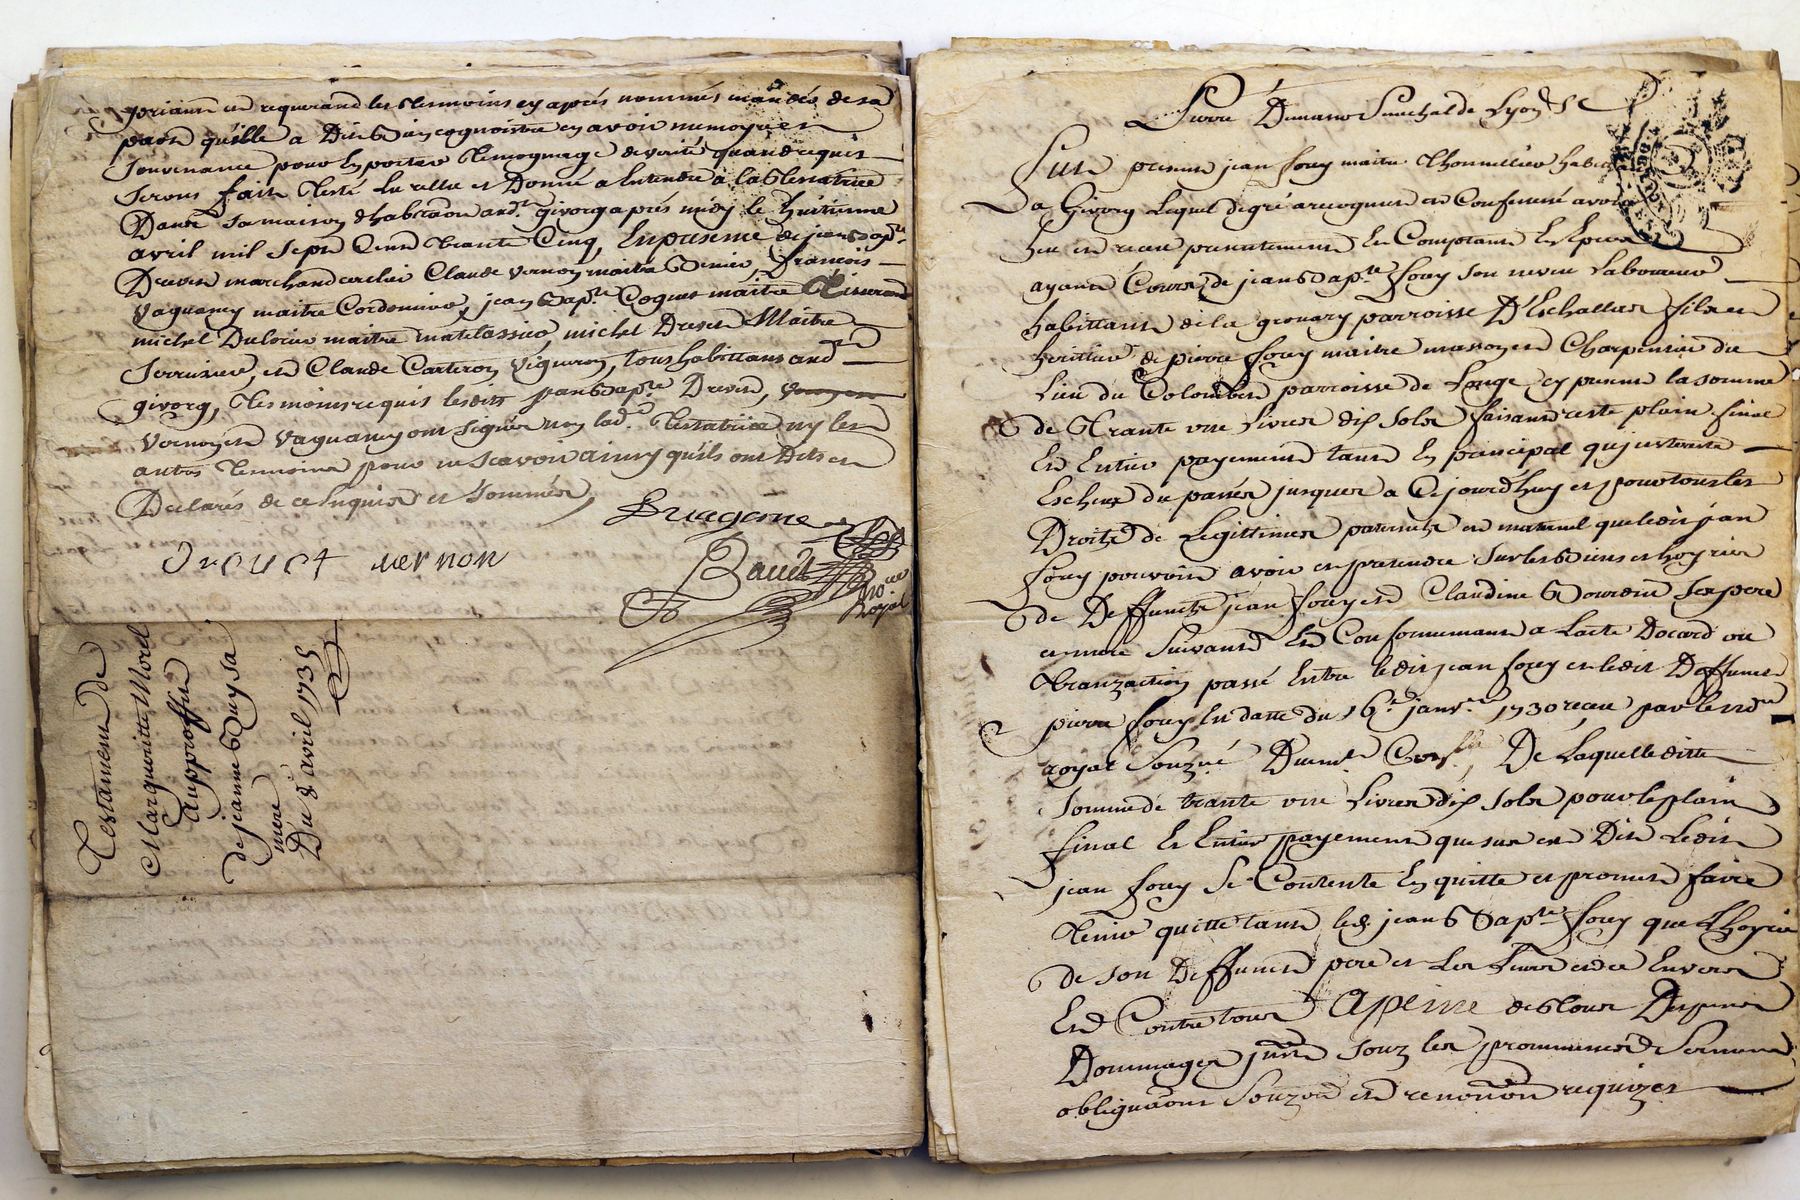 priant et requerand les tesmoins cy après nommés mandés de sa
part qu'elle a dit bien cognoistre en avoir memoyre et
souvenance pour en porter temoignage de verité quand requis
serons fait testé lu relu et donné a entendre a la testatrice
dans sa maison d'habitaon aud.t givors après midy le huitieme
avril mil sept cent trante cinq, en presence de jean bap.te
Drevet marchand Claude vernon maitre, François
Vaganey maitre Cordonnier, jean bap.te Coquet maitre Tisserand
michel Duloire maitre matelassier, michel Drevet Maitre
serrurier, et Claude Carteron vigneron, tous habittans aud.t
givors, tesmoins requis lesdits jean bap.te Drevet,
vernon et vaganey ont signés non lad.e testatrice ny les
autres temoins pour ne scavoir ainsy qu'ils ont dits et
Declarés de ce enquis et sommés,
Drevet vernon
Royal
Testament de
Margueritte Morel
au proffit
de jeanne buy sa
mere
Du 8 avril 1735
Pierre Senechal de Lyon
Fut present jean fory maitre habit
a Givors lequel de gré a recognu et Confessé avoir
heu et receu presentement en Comptant en Espece
ayant Cours, de jean bap.te fory son neveu laboureur
habittant de la parroisse D'Eschallas fils et
heritier de pierre fory maitre masson et Charpentier du
lieu du Colombet parroisse de Longe, cy present la somme
de trante une livres dix sols faisant reste plain final
Et Entier payement tant en principal qu'jnterests
Escheus du passés jusques a Cejourd'huy et pour tous les
Droits de legittimes paternels et maternel que ledit jean
fory pouvoit avoir et pretendre sur les biens et hoyries
de Deffuncts jean fory et Claudine bourdin ses pere
et mere suivant Et Conformemant a l'acte D'acord ou
tranzaction passé Entre ledit jean fory et ledit Deffunct
pierre fory en datte du 16.e janv.r 1730 receu par le no.re
royal souz.né De laquelle ditte
somme de trante une livres dix sols pour le plain
final Et Entier payement que sus est Dit ledit
jean fory se Contente En quitte et promet faire
tenir quitte tant led. jean bap.te fory que l'hoyrie
de son Deffunct pere et les siens et ce Envers
Et Contre tous A peine de tous Despens
Dommages souz les
obligaons souz.on et renon.on requizes